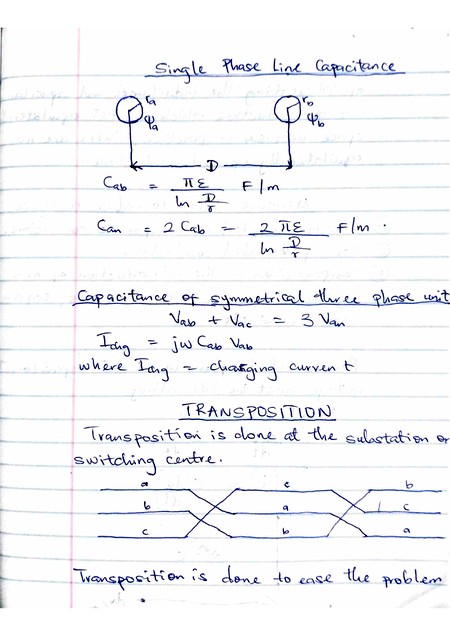 Single Phase Line Capacitance
ra rb
Ψa Ψb
D
Cab = πε / ln D/r F/m
Can = 2 Cab = 2πε / ln D/r F/m.
Capacitance of symmetrical three phase unit
Vab + Vac = 3 Van
Ichg = jω Cab Vab
where Ichg = charging current
TRANSPOSITION
Transposition is done at the substation or
switching centre.
a c b
b a c
c b a
Transposition is done to ease the problem